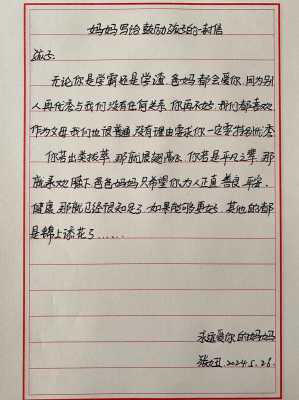 妈妈写给鼓励孩子的一封信
孩子:
无论你是学霸还是学渣,爸妈都会爱你,因为别
人再优秀与我们没有任何关系,你再不好,我们都喜欢
作为父母,我们也很普通,没有理由要求你一定要特别优秀
你若出类拔萃,那就展翅高飞,你若是平凡之辈,那
就承欢膝下,爸爸妈妈只希望你,为人正直,善良,平安,
健康,那就已经很知足了,如果能够更好,其他的都
是锦上添花了......
永远爱你的妈妈
2024.5.26.